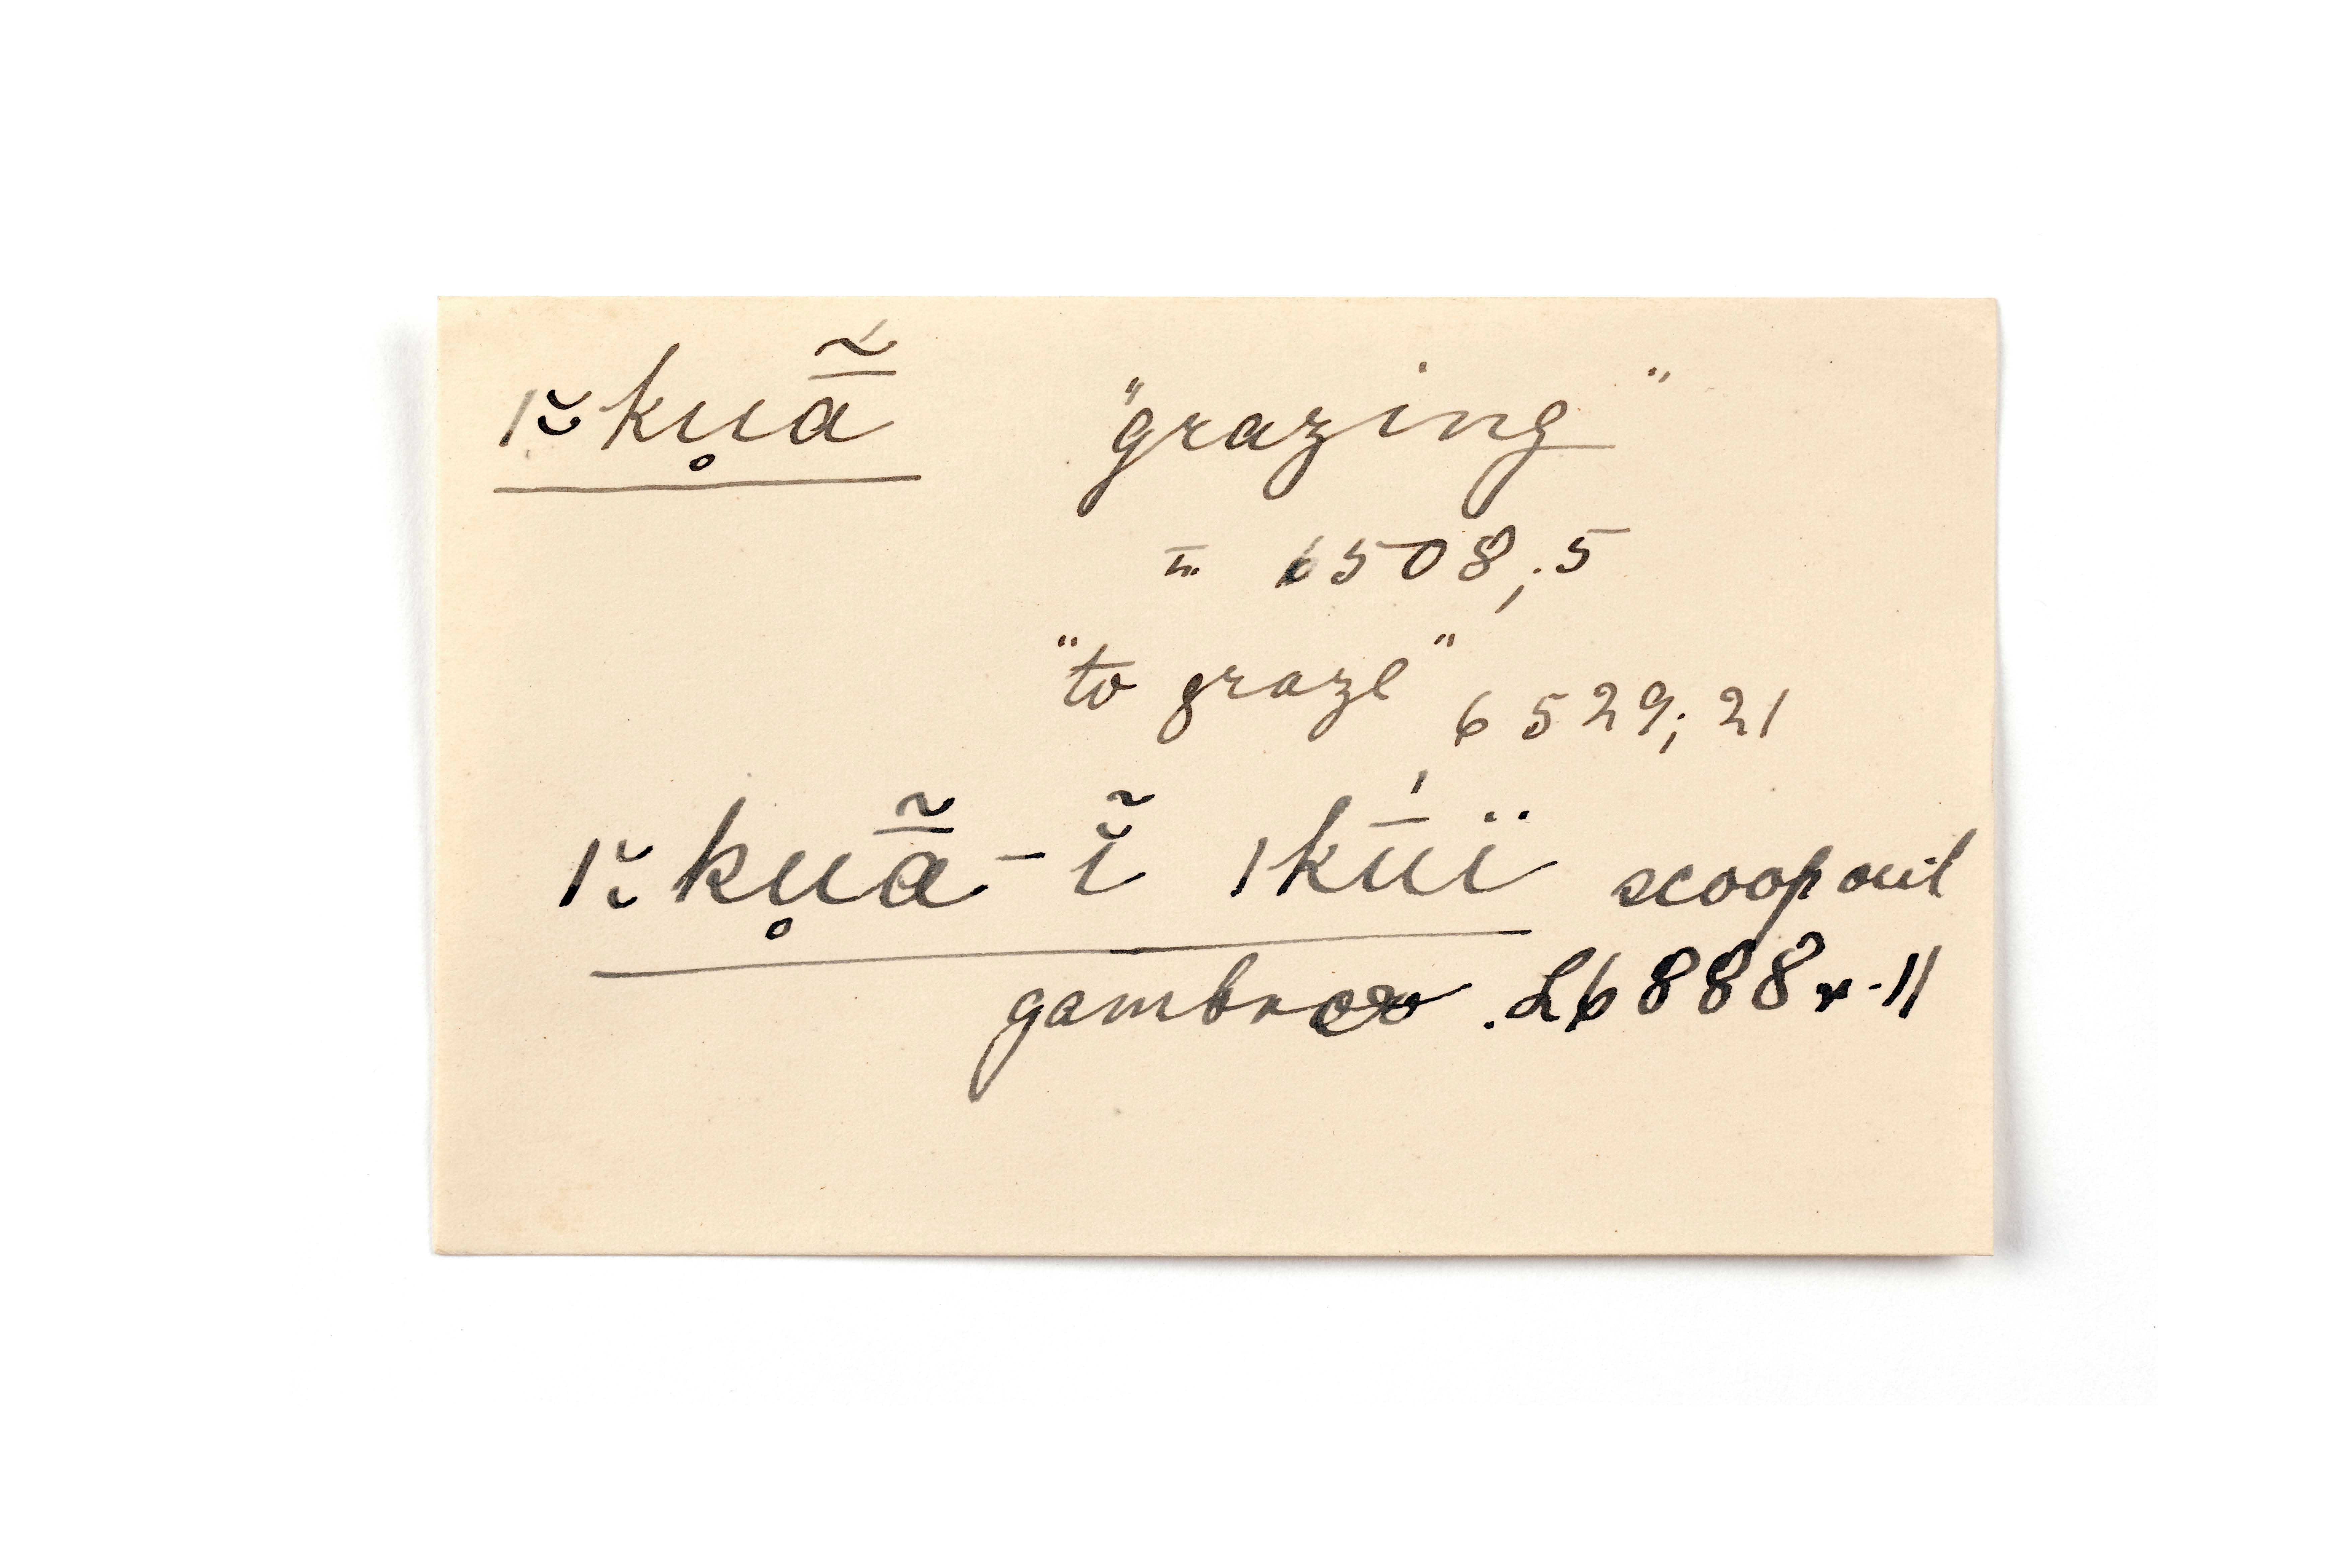 |ῐ̰ku̥ā̃́ "grazing"
= 6508;.5
"to graze" 6529; 21
|ῐ̰ku̥ā̃-ĭ̃ |kū́ï scoop out
gambroo. L6888r-11